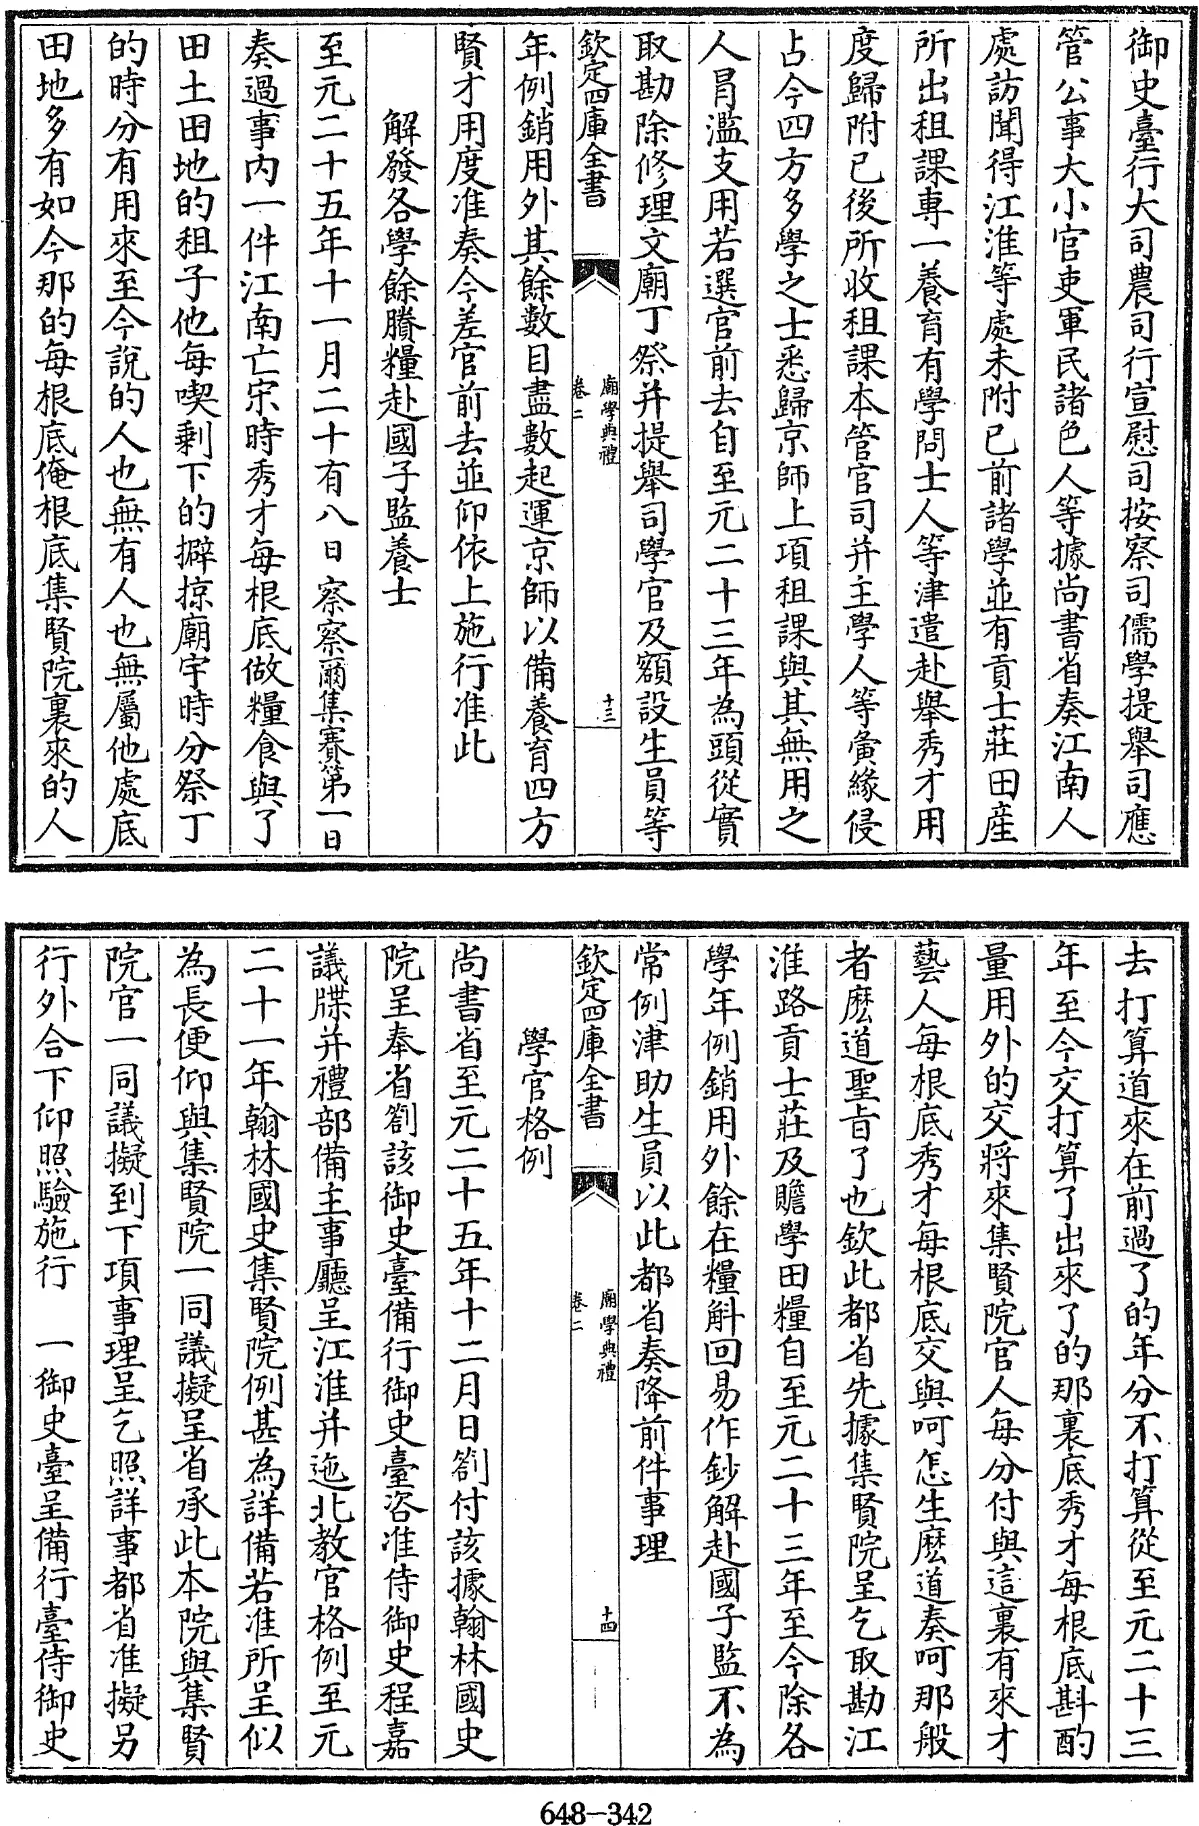 御史臺行大司農司行宣慰司按察司儒學提舉司應
管公事大小官吏軍民諸色人等據尚書省奏江南人
處訪聞得江淮等處未附已前諸學並有貢士莊田産
所出租課專一養育有學問士人等津遣赴舉秀才用
度歸附已後所收租課本管官司并主學人等夤緣侵
占今四方多學之士悉歸京師上項租課與其無用之
人冒濫支用若選官前去自至元二十三年為頭從實
取勘除修理文廟丁祭并提舉司學官及額設生員等
欽定四庫全書
廟學典禮
卷二
十三
年例銷用外其餘數目盡數起運京師以備養育四方
賢才用度准奏今差官前去並仰依上施行准此
解發各學餘賸糧赴國子監養士
至元二十五年十一月二十有八日察察爾集賽第一日
奏過事内一件江南亡宋時秀才每根底做糧食與了
田土田地的租子他每喫剩下的擗掠廟宇時分祭丁
的時分有用來至今說的人也無有人也無屬他處底
田地多有如今那的每根底俺根底集賢院裏來的人
去打算道來在前過了的年分不打算從至元二十三
年至今交打算了出來了的那裏底秀才每根底斟酌
量用外的交將來集賢院官人每分付與這裏有來才
藝人每根底秀才每根底交與呵怎生麽道奏呵那般
者麽道聖旨了也欽此都省先據集賢院呈乞取勘江
淮路貢士莊及贍學田糧自至元二十三年至今除各
學年例銷用外餘在糧斛回易作鈔解赴國子監不為
常例津助生員以此都省奏降前件事理
欽定四庫全書
廟學典禮
卷二
十四
學官格例
尚書省至元二十五年十二月日劄付該據翰林國史
院呈奉省劄該御史臺備行御史臺咨准侍御史程嘉
議牒并禮部備主事廳呈江淮并迤北教官格例至元
二十一年翰林國史集賢院例甚為詳備若准所呈似
為長便仰與集賢院一同議擬呈省承此本院與集賢
院官一同議擬到下項事理呈乞照詳事都省准擬另
行外合下仰照驗施行　一御史臺呈備行臺侍御史
648-342